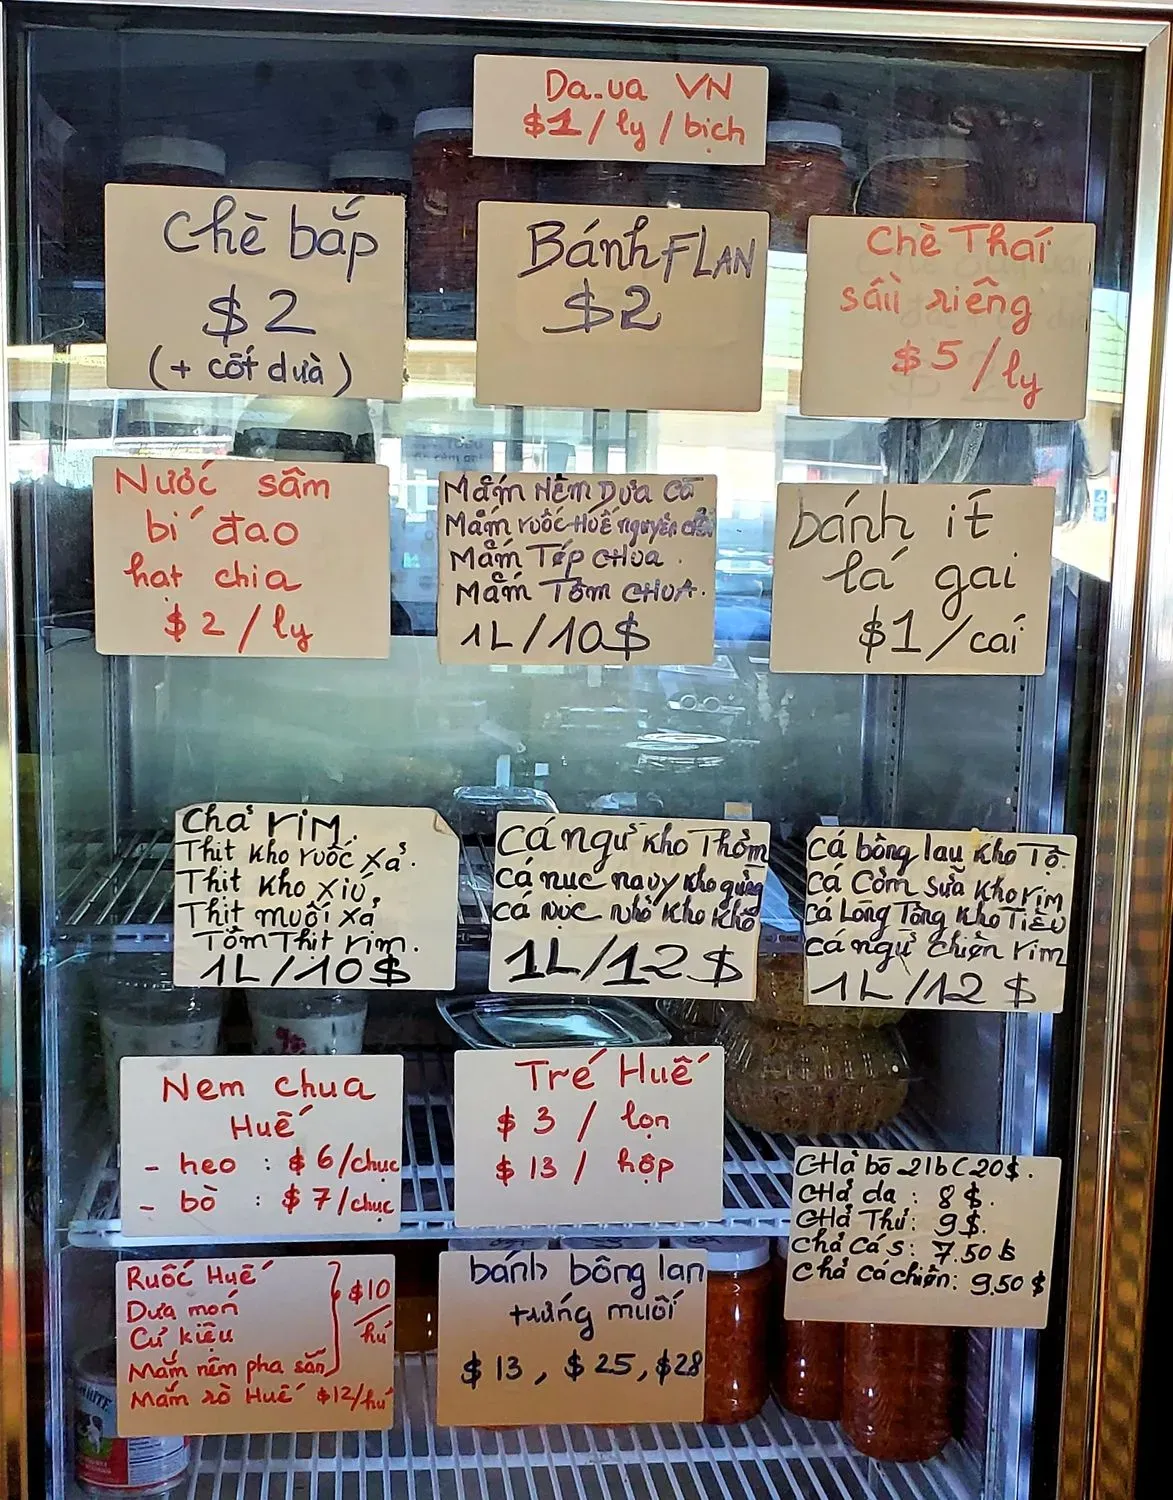 Da.ua VN
$1/ly/bịch
Chè bắp
$2
(+ cốt dừa)
Bánh FLAN
$2
Chè Thái
sầu riêng
$5/ly
Nước sâm
bí đao
hạt chia
$2/ly
Mắm Nêm Dưa Cà
Mắm ruốc Huế nguyên
Mắm Tép CHUA.
Mắm Tôm CHUA.
1L/10$
bánh ít
lá gai
$1/cái
Chả rim.
Thịt kho ruốc xả.
Thịt kho xíu
Thịt muối xả
Tôm Thịt rim.
1L/10$
Cá ngừ kho Thơm
Cá nục navy kho gừng
Cá nục nhỏ kho khô
1L/12$
Cá bông lau kho Tộ.
Cá Cơm sữa kho rim
Cá Lòng Tong kho Tiêu
Cá ngừ chiên rim
1L/12$
Nem chua
Huế
- heo : $6/chục
- bò : $7/chục
Tré Huế
$3 / lọn
$13 / hộp
CHả bò 2lb 20$.
CHả da : 8$.
CHả Thủ: 9$.
Chả Cá s: 7.50
Chả cá chiên: 9.50$
Ruốc Huế
Dưa món
Củ kiệu
Mắm nêm pha sẵn
$10/hủ
Mắm rò Huế $12/hủ
bánh bông lan
trứng muối
$13, $25, $28